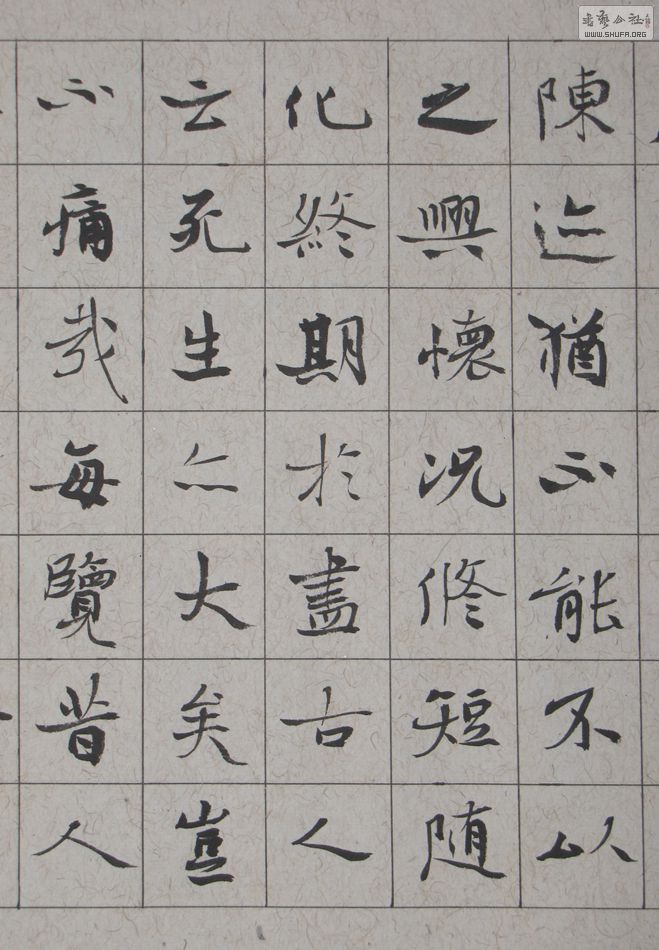 陳迹猶不能不以
之興懷况修短随
化終期於盡古人
云死生亦大矣豈
不痛哉每覽昔人
書藝公社
WWW.SHUFA.ORG